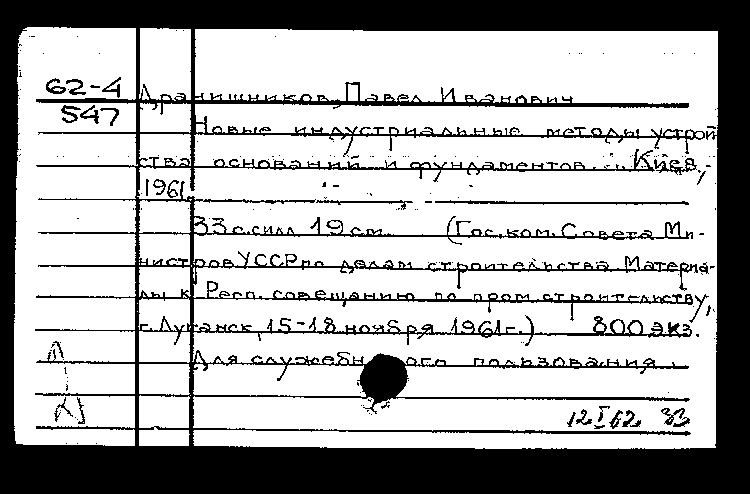 62-4
547
Дранишников, Павел Иванович
Новые индустриальные методы устрой
ства оснований и фундаментов. Киев,
1961.
33 с. с илл. 19 см. (Гос. ком. Совета Ми-
нистров УССР по делам строительства. Материа-
лы к Респ. совещанию по пром. строительству,
г. Луганск, 15-18 ноября 1961 г.) 800 экз.
Для служебного пользования
12 I 62